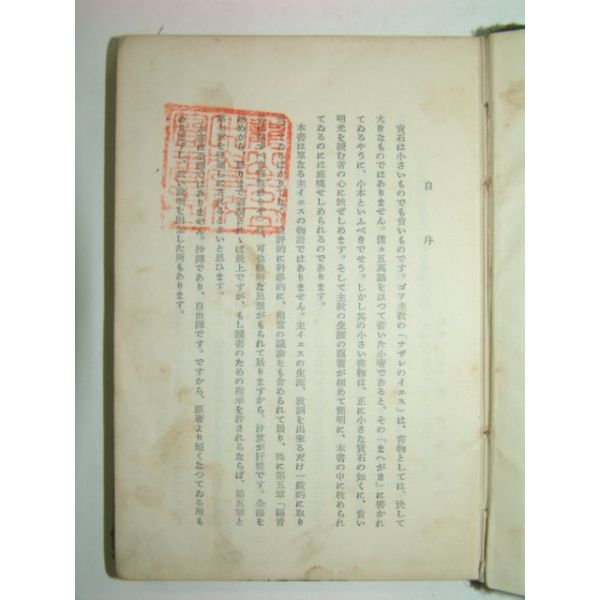 自序
寶石は小さいものでも貴いものです。ゴア主教の「ナザレのイエス」は、書物としては、決して
大きなものではありません。僅々五萬語を以つて書いた小著であると、その「まへがき」に書かれ
てゐるやうに、小本といふべきでせう。しかし其の小さい書物は、正に小さな寳石の如くに、貴い
明光を讀む者の心に映ぜしめます。そして主敎の生涯の蘊蓄が極めて簡明に、本書の中に收められ
てゐるのには感嘆せしめられるのであります。
本書は單なる主イエスの物語ではありません。主イエスの生涯、敎訓を出來るだけ一般的に取り
てゐるばかりでなく、 評的に科學的に、相當の議論をも含められて居り、殊に第五章「福音
可也難解な思想がもられて居りますから、注意が肝要です。全部を
始めから終りまで通讀されゝば最上ですが、もし讀書のための指示を許されるならば、第五章と
後 しにされるもよいと思ひます。
全譯ではありません。抄譯であり、自由譯です。ですから、原著より短くなつてゐる所も
あり、 し、短い說明を附加した所もあります。